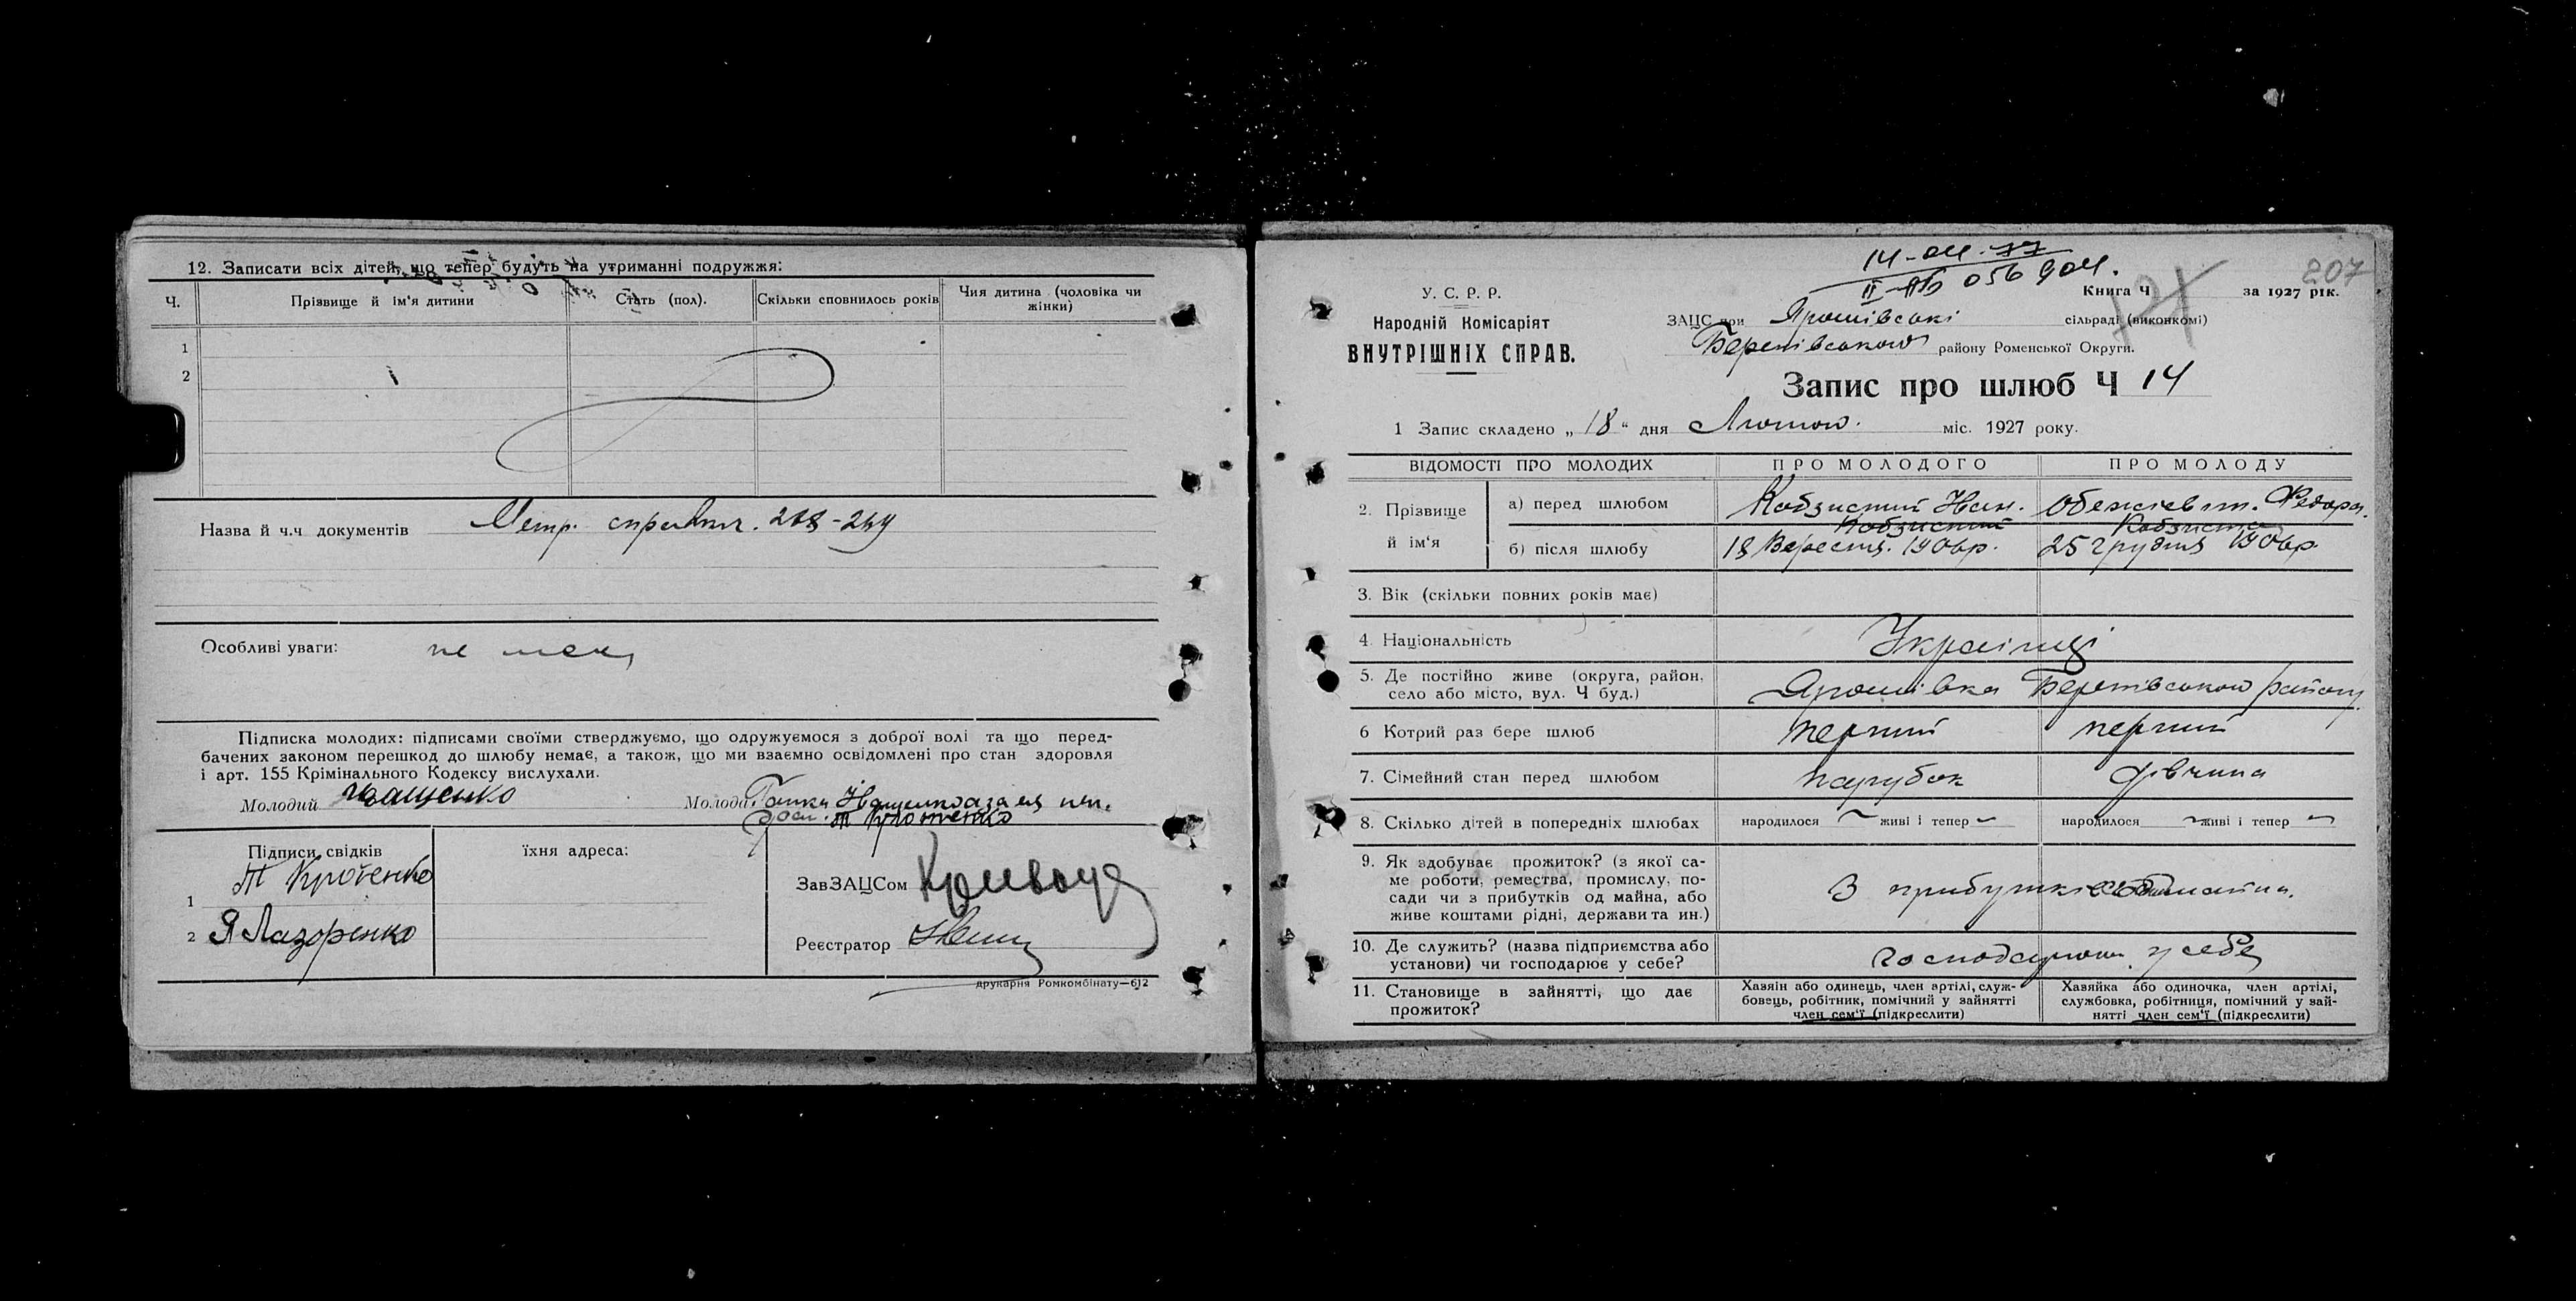 12. Записати всіх дітей, що тепер будуть на утриманні подружжя:
Ч. Прізвище й ім'я дитини Стать (пол). Скільки сповнилось років Чия дитина (чоловіка чи жінки)
1
2
Назва й ч.ч документів Метр.
Особливі уваги: не має
Підписка молодих: підписами своїми стверджуємо, що одружуємося з доброї волі та що перед-
бачених законом перешкод до шлюбу немає, а також, що ми взаємно освідомлені про стан здоровля
і арт. 155 Крімінального Кодексу вислухали.
Молодий Іващенко Молода
Підписи свідків їхня адреса:
1
2 Я Лазоренко
ЗавЗАЦСом
Реєстратор
друкарня Ромкомбінату—612
14-04-77
II 056904.
207
У. С. Р. Р.
Народній Комісаріят
ВНУТРІШНІХ СПРАВ.
Книга Ч за 1927 рік.
ЗАЦС при Ярошівські сільраді (виконкомі)
Беретівського району Роменської Округи.
Запис про шлюб Ч 14
1 Запис складено „18" дня Лютого. міс. 1927 року.
ВІДОМОСТІ ПРО МОЛОДИХ ПРО МОЛОДОГО ПРО МОЛОДУ
2. Прізвище й ім'я
а) перед шлюбом Кобзистий Федора.
б) після шлюбу Кобзистий Кобзиста
18 Вересня. 1906р. 25 грудня 1906р.
3. Вік (скільки повних років має)
4. Національність Українці
5. Де постійно живе (округа, район,
село або місто, вул. Ч буд.) Ярошівка Беретівського району
6 Котрий раз бере шлюб перший перший
7. Сімейний стан перед шлюбом парубок дівчина
8. Скілько дітей в попередніх шлюбах народилося ~ живі і тепер ~ народилося ~ живі і тепер ~
9. Як здобуває прожиток? (з якої са-
ме роботи, ремества, промислу, по-
сади чи з прибутків од майна, або
живе коштами рідні, держави та ин.) З прибутків
10. Де служить? (назва підприємства або
установи) чи господарює у себе? господарюють у себе
11. Становище в зайнятті, що дає
прожиток?
Хазяїн або одинець, член артілі, служ-
бовець, робітник, помічний у зайнятті
член сем'ї (підкреслити)
Хазяйка або одиночка, член артілі,
службовка, робітниця, помічний у зай-
нятті член сем'ї (підкреслити)